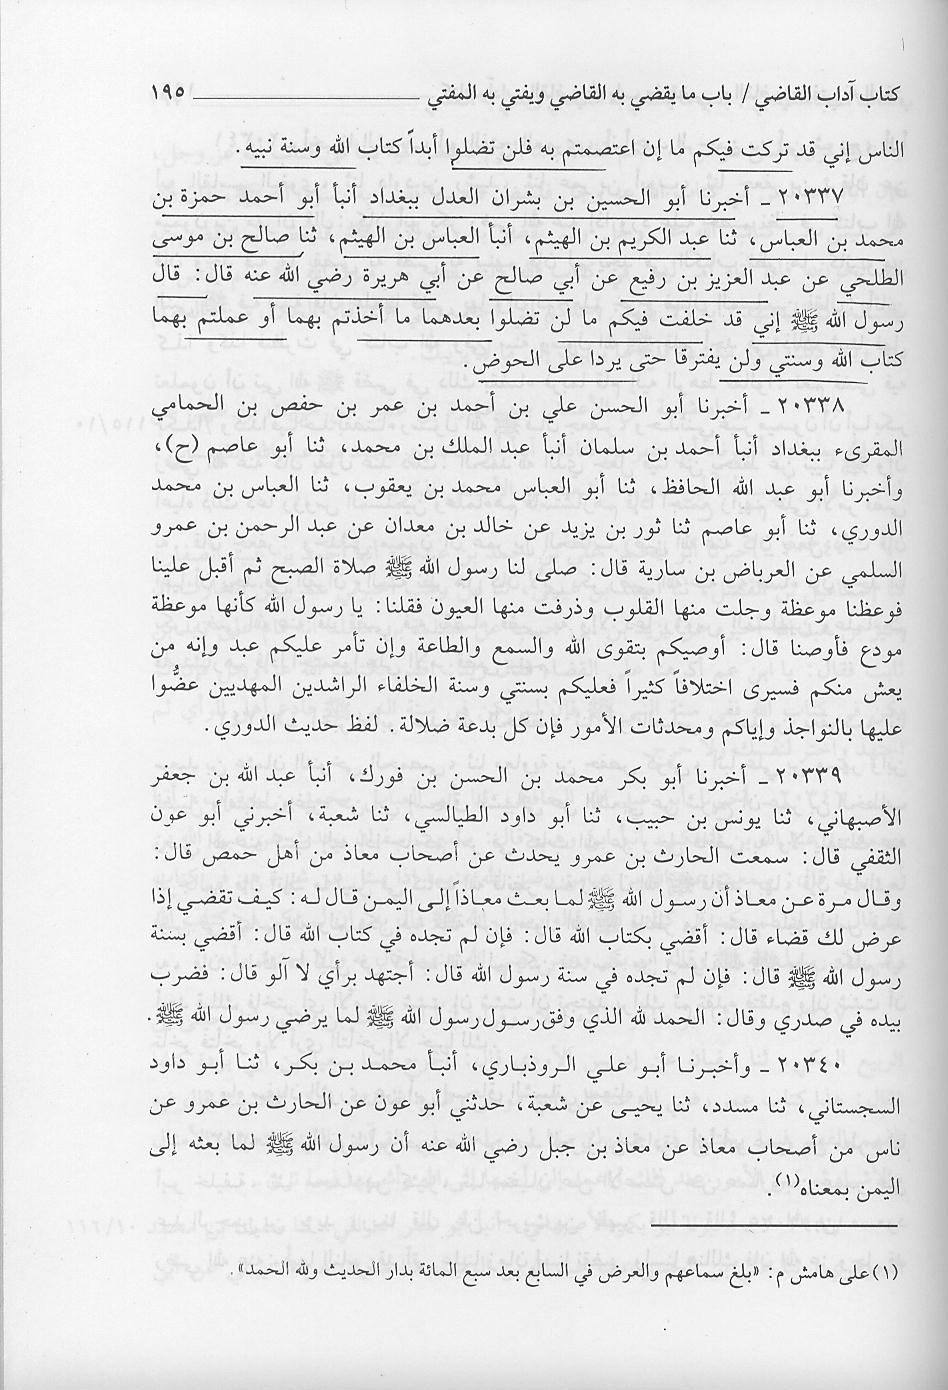 كتاب آداب القاضي / باب ما يقضي به القاضي ويفتي به المفتي ١٩٥
الناس إني قد تركت فيكم ما إن اعتصمتم به فلن تضلوا أبداً كتاب الله وسنة نبيه.
٢٠٣٣٧ ـ أخبرنا أبو الحسين بن بشران العدل ببغداد أنبأ أبو أحمد حمزة بن
محمد بن العباس، ثنا عبد الكريم بن الهيثم، أنبأ العباس بن الهيثم، ثنا صالح بن موسى
الطلحي عن عبد العزيز بن رفيع عن أبي صالح عن أبي هريرة رضي الله عنه قال: قال
رسول الله ﷺ إني قد خلفت فيكم ما لن تضلوا بعدهما ما أخذتم بهما أو عملتم بهما
كتاب الله وسنتي ولن يفترقا حتى يردا على الحوض.
٢٠٣٣٨ ـ أخبرنا أبو الحسن علي بن أحمد بن عمر بن حفص بن الحمامي
المقرىء ببغداد أنبأ أحمد بن سلمان أنبأ عبد الملك بن محمد، ثنا أبو عاصم (ح)،
وأخبرنا أبو عبد الله الحافظ، ثنا أبو العباس محمد بن يعقوب، ثنا العباس بن محمد
الدوري، ثنا أبو عاصم ثنا ثور بن يزيد عن خالد بن معدان عن عبد الرحمن بن عمرو
السلمي عن العرباض بن سارية قال: صلى لنا رسول الله ﷺ صلاة الصبح ثم أقبل علينا
فوعظنا موعظة وجلت منها القلوب وذرفت منها العيون فقلنا: يا رسول الله كأنها موعظة
مودع فأوصنا قال: أوصيكم بتقوى الله والسمع والطاعة وإن تأمر عليكم عبد وإنه من
يعش منكم فسيرى اختلافاً كثيراً فعليكم بسنتي وسنة الخلفاء الراشدين المهديين عضُّوا
عليها بالنواجذ وإياكم ومحدثات الأمور فإن كل بدعة ضلالة. لفظ حديث الدوري.
٢٠٣٣٩ ـ أخبرنا أبو بكر محمد بن الحسن بن فورك، أنبأ عبد الله بن جعفر
الأصبهاني، ثنا يونس بن حبيب، ثنا أبو داود الطيالسي، ثنا شعبة، أخبرني أبو عون
الثقفي قال: سمعت الحارث بن عمرو يحدث عن أصحاب معاذ من أهل حمص قال:
وقال مرة عن معاذ أن رسول الله ﷺ لما بعث معاذاً إلى اليمن قال له: كيف تقضي إذا
عرض لك قضاء قال: أقضي بكتاب الله قال: فإن لم تجده في كتاب الله قال: أقضي بسنة
رسول الله ﷺ قال: فإن لم تجده في سنة رسول الله قال: أجتهد برأي لا آلو قال: فضرب
بيده في صدري وقال: الحمد لله الذي وفق رسول رسول الله ﷺ لما يرضي رسول الله ﷺ.
٢٠٣٤٠ ـ وأخبرنا أبو علي الروذباري، أنبأ محمد بن بكر، ثنا أبو داود
السجستاني، ثنا مسدد، ثنا يحيى عن شعبة، حدثني أبو عون عن الحارث بن عمرو عن
ناس من أصحاب معاذ عن معاذ بن جبل رضي الله عنه أن رسول الله ﷺ لما بعثه إلى
اليمن بمعناه(١).
(١) على هامش م: «بلغ سماعهم والعرض في السابع بعد سبع المائة بدار الحديث ولله الحمد».